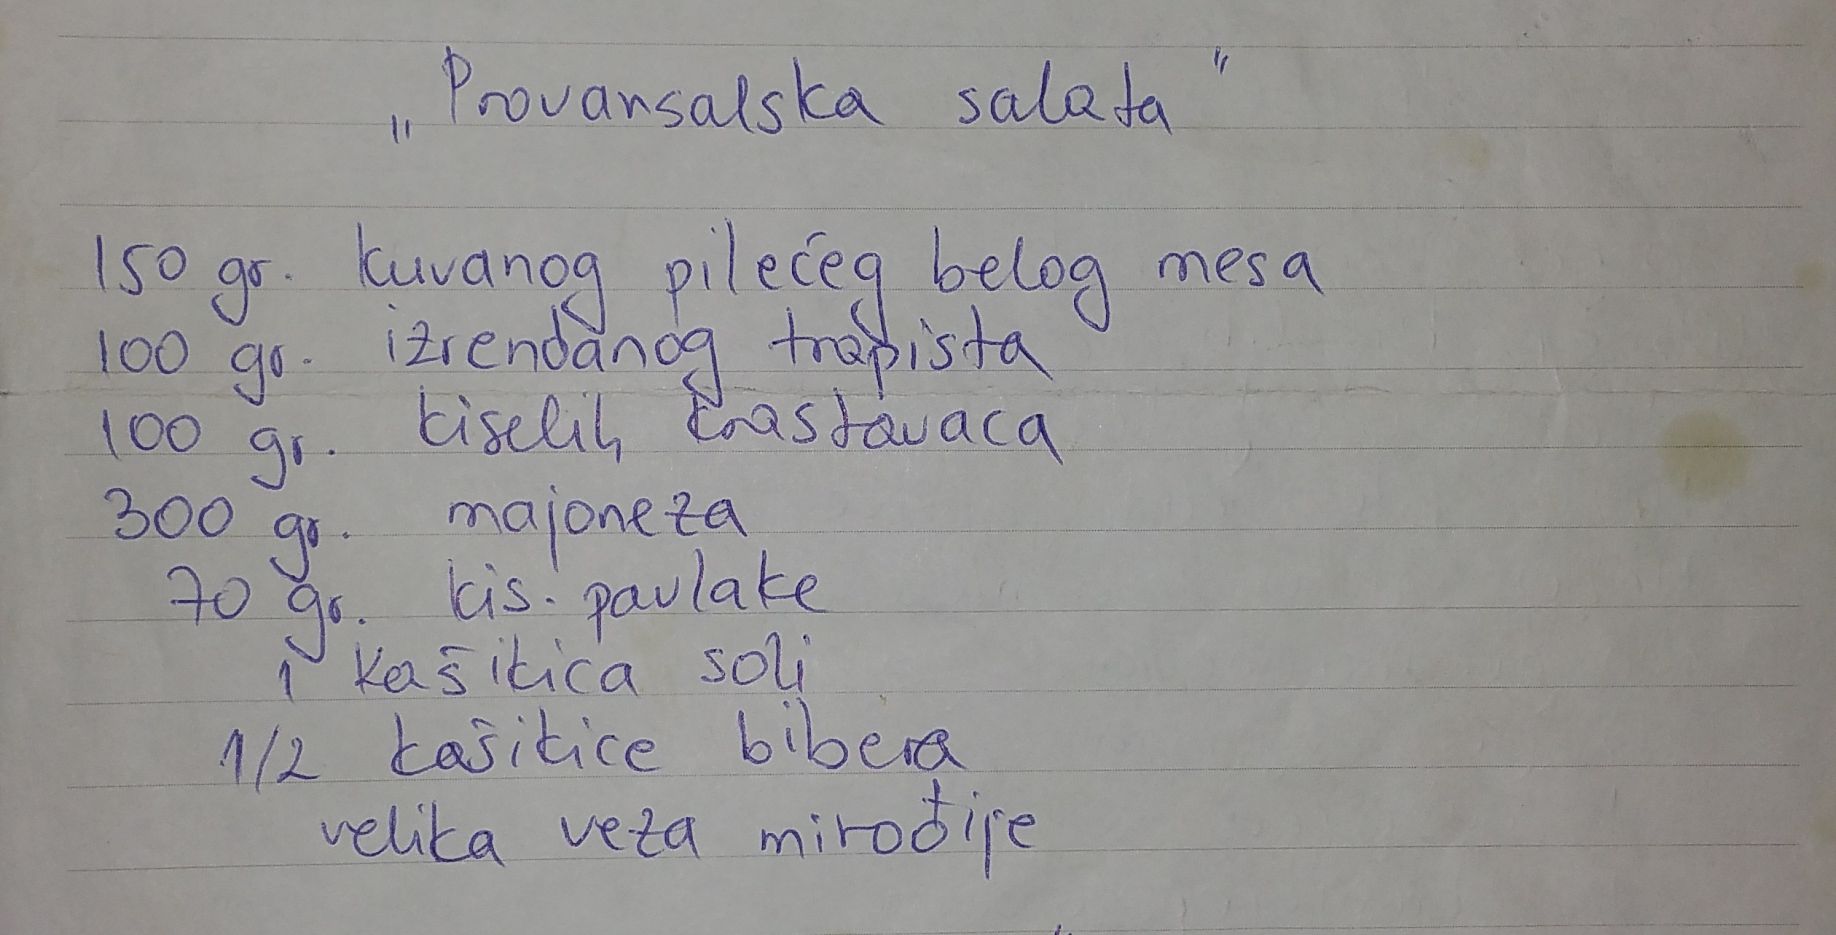 „Provansalska salata"
150 gr. kuvanog pilećeg belog mesa
100 gr. izrendanog trapista
100 gr. kiselih krastavaca
300 gr. majoneza
70 gr. kis. pavlake
1 kašikica soli
1/2 kašikice bibera
velika veza mirođije